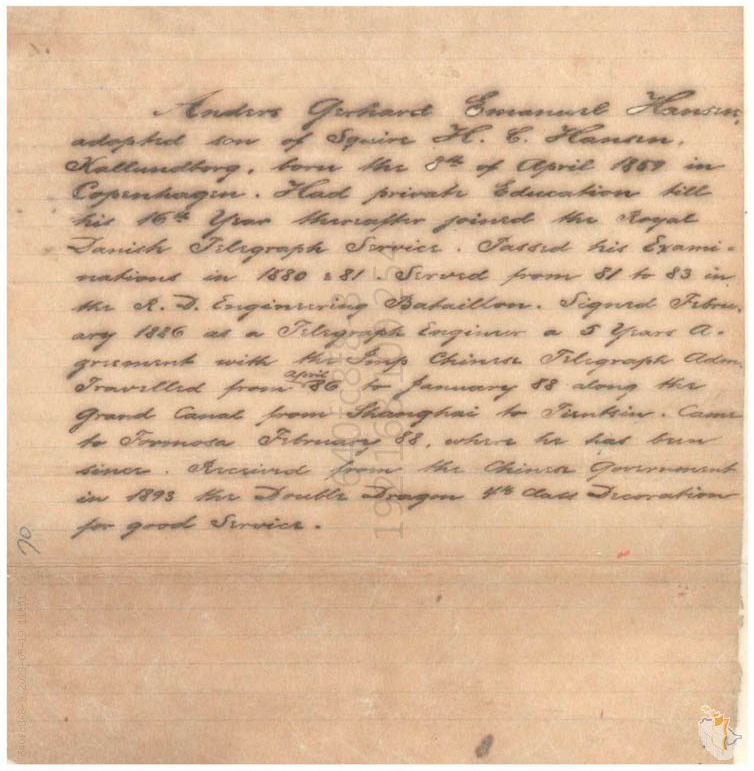 Anders Gerhard Emanuel Hansen,
adopted son of Squire H. C. Hansen,
Kallundborg, born the 8th of April 1859 in
Copenhagen. Had private Education till
his 16th Year thereafter joined the Royal
Danish Telegraph Service. Passed his Exami-
nations in 1880 & 81. Served from 81 to 83 in
the R. D. Engineering Bataillon. Signed Febru-
ary 1886 as a Telegraph Engineer a 5 Years A-
greement with the Imp Chinese Telegraph Adm.
april
Travelled from 86 to January 88 along the
Grand Canal from Shanghai to Tientsin. Came
to Formosa February 88, where he has been
since. Received from the Chinese Government
in 1893 the Double Dragon 4th Class Decoration
for good Service.
70